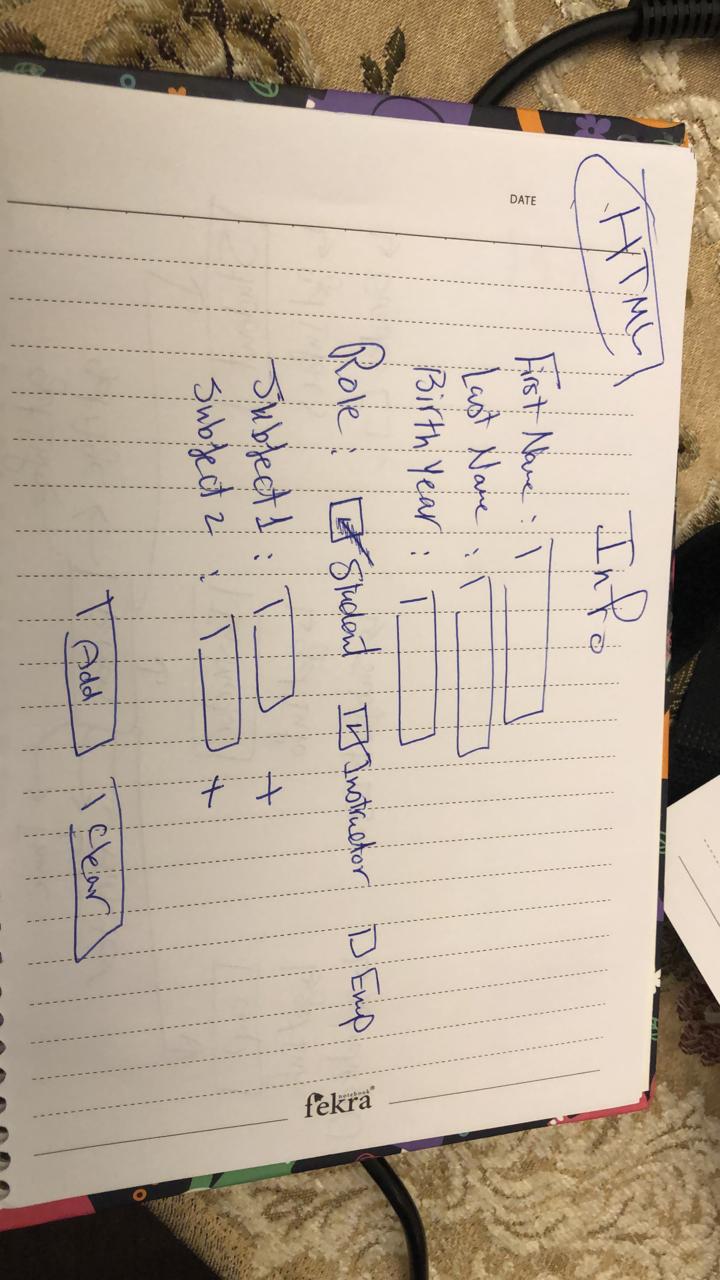 HTML
Info
DATE
First Name :
Last Name :
Birth Year :
Role : Student Instructor Emp
Subject 1 : +
Subject 2 : +
Add Clear
fekra